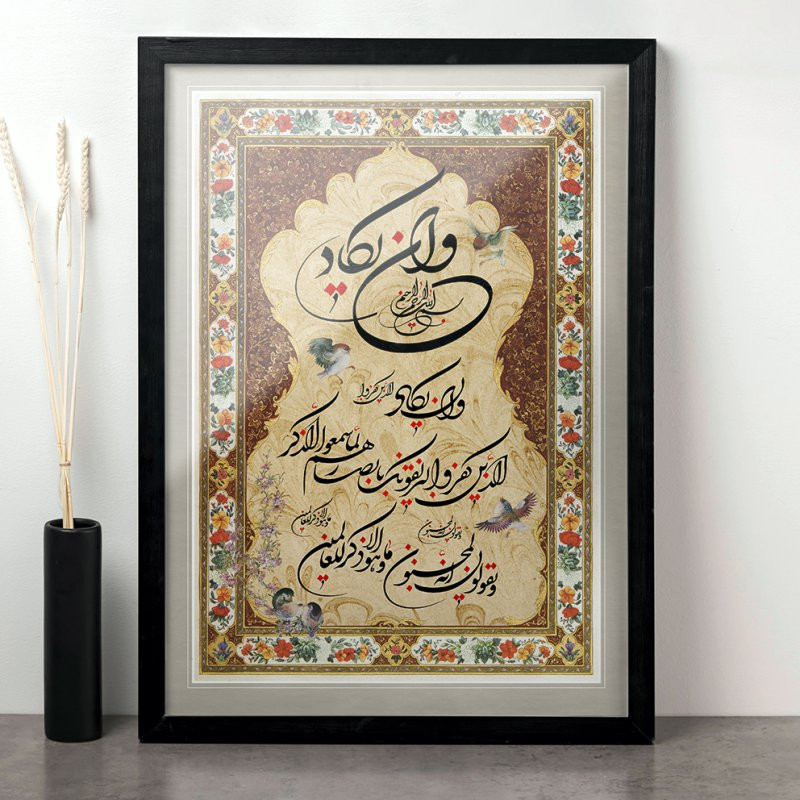 وان یکاد
بسم الله الرحمن الرحیم
وان یکاد الذین کفروا
الذین کفروا لیزلقونک بابصارهم لما سمعوا الذکر
وما هو الا ذکر للعالمین
ویقولون انه لمجنون
ویقولون انه لمجنون وما هو الا ذکر للعالمین